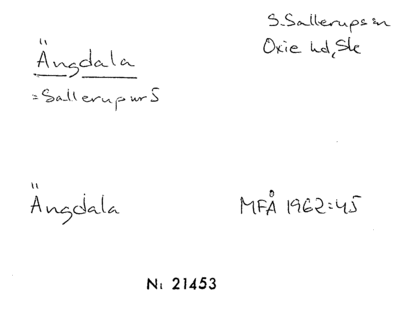 S. Sallerups sn
Oxie hd, Sk
Ängdala
= Sallerup nr 5
Ängdala
MFÅ 1962:45
N: 21453